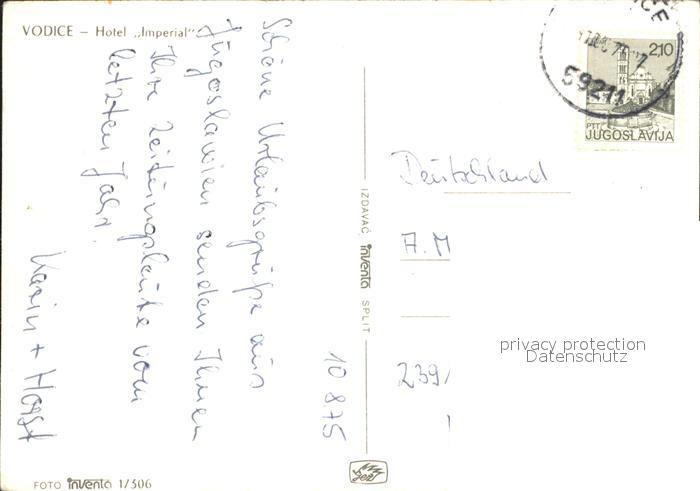 VODICE – Hotel „Imperial“
10 8.75
Schöne Urlaubsgrüße aus
Jugoslawien senden Ihnen
Ihre Zeitungsleute vom
letzten Jahr.
Karin + Horst
FOTO inventa 1/506
IZDAVAČ inventa SPLIT
59211
2,10
PTT
JUGOSLAVIJA
Deutschland
A. M
239
privacy protection
Datenschutz